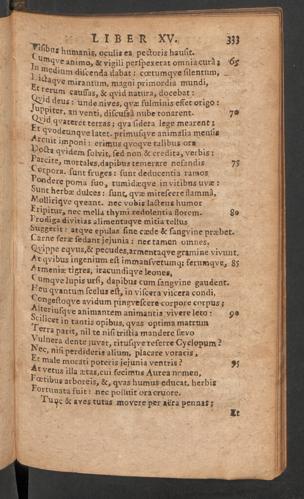 LIBER XV. 333
Visibus humanis, oculis ea pectoris hausit.
Cumque animo, & vigili perspexerat omnia cura; 65
In medium discenda dabat: cœtumque silentum,
Dictaque mirantum, magni primordia mundi,
Et rerum caussas, & quid natura, docebat:
Quid deus: unde nives, quæ fulminis esset origo:
Juppiter, an venti, discussa nube tonarent. 70
Quid quateret terras; qua sidera lege mearent;
Et quodcunque latet. primusque animalia mensis
Arcuit imponi: primus quoque talibus ora
Docta quidem solvit, sed non & credita, verbis:
Parcite, mortales, dapibus temerare nefandis 75
Corpora. sunt fruges: sunt deducentia ramos
Pondere poma suo, tumidæque in vitibus uvæ:
Sunt herbæ dulces: sunt, quæ mitescere flammâ,
Mollirique queant. nec vobis lacteus humor
Eripitur, nec mella thymi redolentia florem. 80
Prodiga divitias alimentaque mitia tellus
Suggerit: atque epulas sine cæde & sangvine præbet.
Carne feræ sedant jejunia: nec tamen omnes,
Quippe equus, & pecudes, armentaque gramine vivunt.
At quibus ingenium est immansvetumque ferumque, 85
Armeniæ tigres, iracundique leones,
Cumque lupis ursi, dapibus cum sangvine gaudent.
Heu quantum scelus est, in viscera viscera condi,
Congestoque avidum pingvescere corpore corpus;
Alteriusque animantem animantis vivere leto: 90
Scilicet in tantis opibus, quas optima matrum
Terra parit, nil te nisi tristia mandere sævo
Vulnera dente juvat, ritusque referre Cyclopum?
Nec, nisi perdideris alium, placare voracis,
Et male morati poteris jejunia ventris? 95
At vetus illa ætas, cui fecimus Aurea nomen,
Fœtibus arboreis, &, quas humus educat, herbis
Fortunata fuit: nec polluit ora cruore.
Tunc & aves tutas movere per aëra pennas;
Et